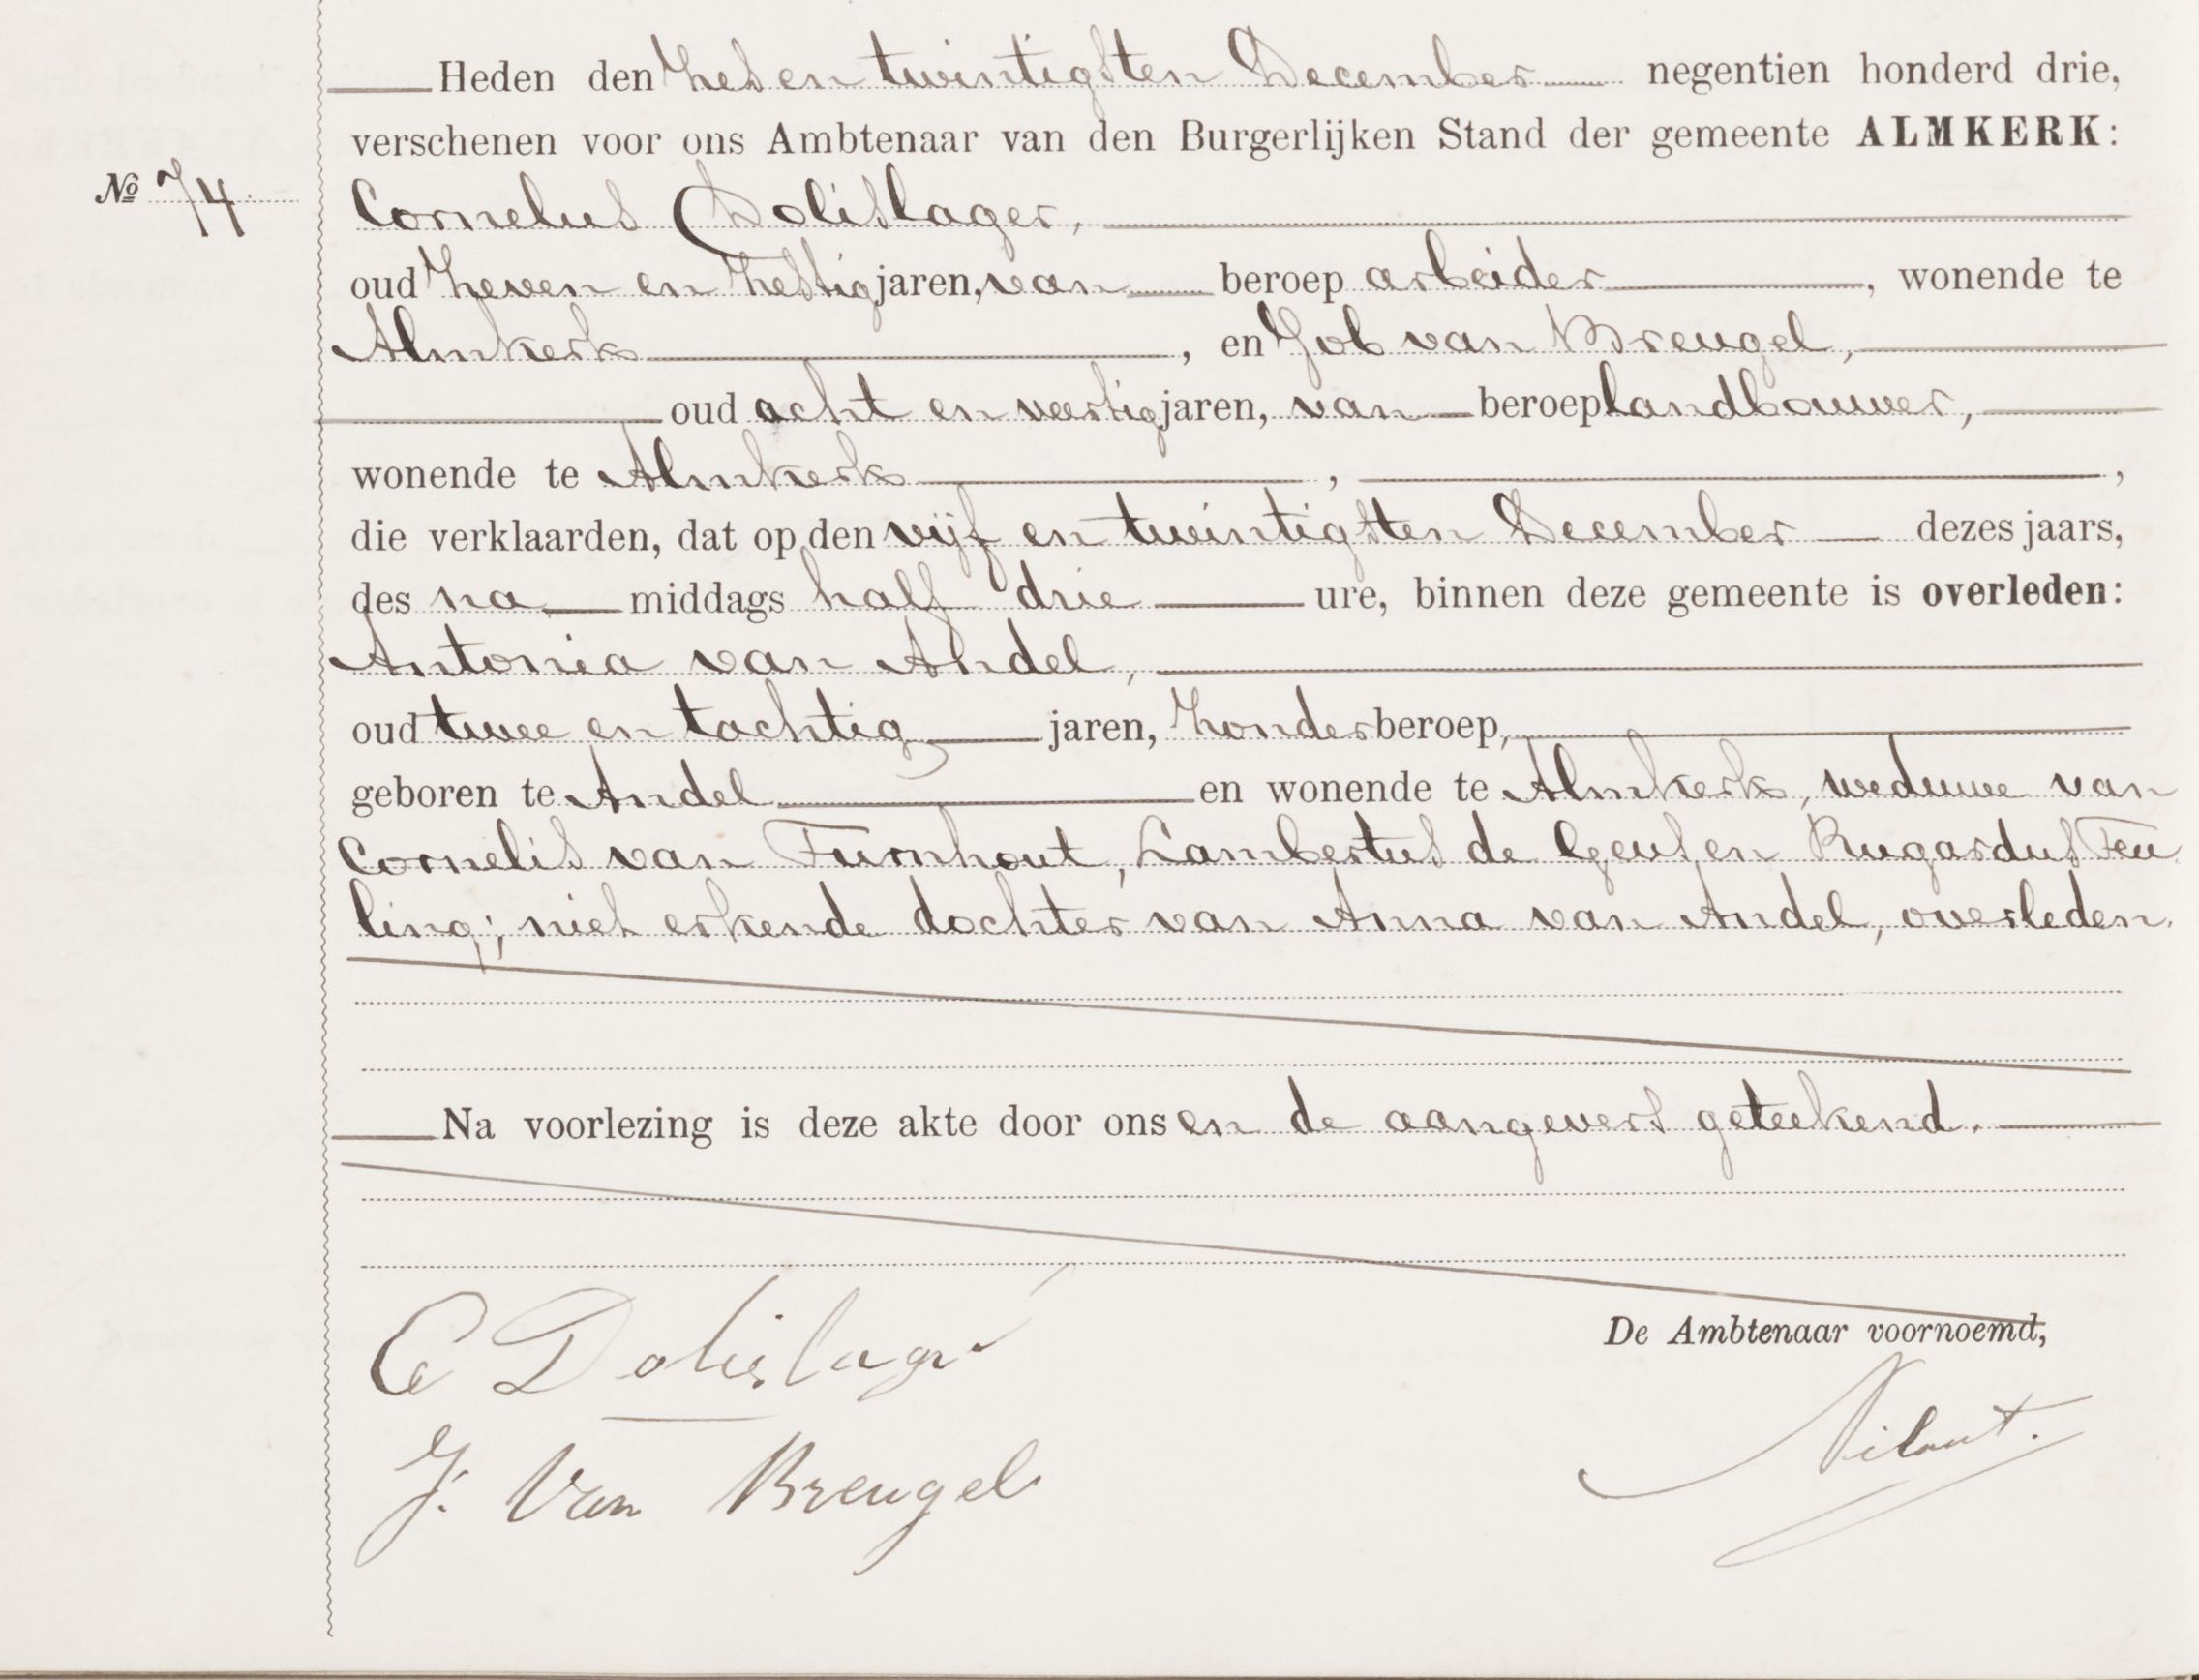 Heden den zes en twintigsten December negentien honderd drie,
verschenen voor ons Ambtenaar van den Burgerlijken Stand der gemeente ALMKERK:
No 74
Cornelus Dolislager,
oud zeven en zestig jaren, van beroep arbeider, wonende te
Almkerk, en Job van Breugel,
oud acht en veertig jaren, van beroep landbouwer,
wonende te Almkerk, ,
die verklaarden, dat op den vijf en twintigsten December dezes jaars,
des na middags half drie ure, binnen deze gemeente is overleden:
Antonia van Andel,
oud twee en tachtig jaren, zonder beroep,
geboren te Andel en wonende te Almkerk, weduwe van
Cornelis van Turnhout, Lambertus de Geus en Rugardus Teu
ling; niet erkende dochter van Anna van Andel, overleden.
Na voorlezing is deze akte door ons en de aangevers geteekend.
De Ambtenaar voornoemd,
C Dolislager
J. Van Breugel